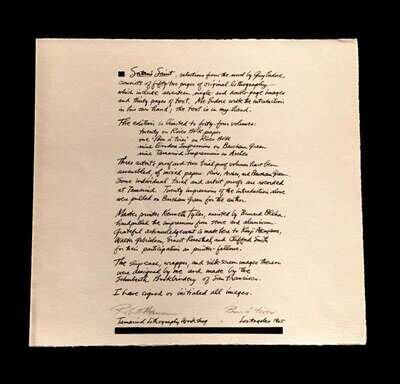 Satan's Saint, selections from the novel by Guy Endore,
consists of fifty-two pages of original lithography—
which include seventeen single- and double-page images
and thirty pages of text. Mr. Endore wrote the introduction
in his own hand; the text is in my hand.
The edition is limited to forty-four volumes:
twenty on Rives BFK paper
one "Bon à tirer" on Rives BFK
nine Tamarind Impressions on
Three artist's proof and two trial proof volumes have been
assembled, of mixed paper:
Some individual trial and artist proofs are recorded
at Tamarind. Twenty impressions of the introduction alone
were pulled on German for the author.
Master printer Kenneth Tyler, assisted by Bernard Bleha,
hand-pulled the impressions from stone and aluminum.
Grateful acknowledgement is made here to
Walter Gabrielson, Ernest Rosenthal, and Clifford Smith
for their participation as printer-fellows.
The slip-case, wrapper, and silk-screen images thereon
were designed by me and made by the
Schuberth Bookbindery of San Francisco.
I have signed or initialed all images.
Tamarind Lithography Workshop Los Angeles 1965